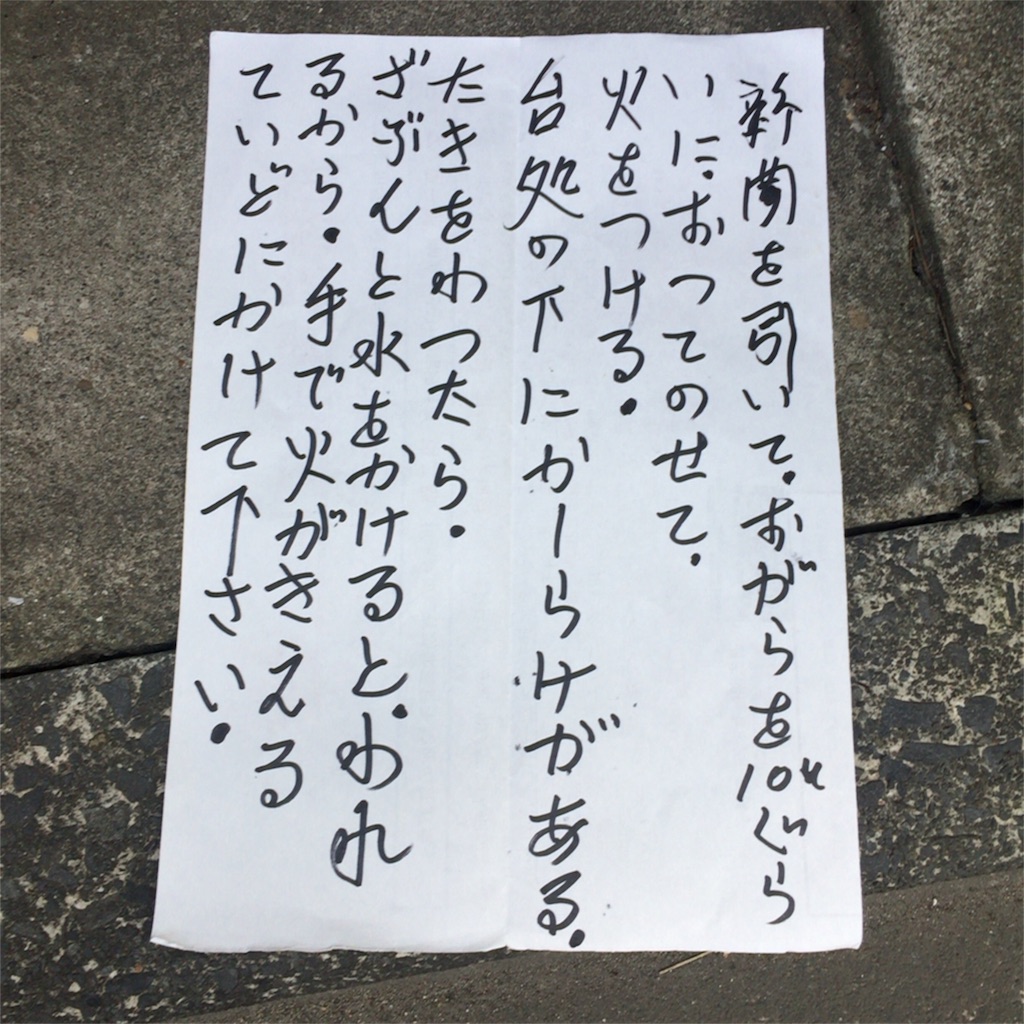 新聞を引いて.おがらを10㎝ぐら
いにおってのせて.
火をつける.
台処の下にかーらけがある.
たきをわつたら.
ざぶんと水をかけると.われ
るから.手で火がきえる
ていどにかけて下さい.